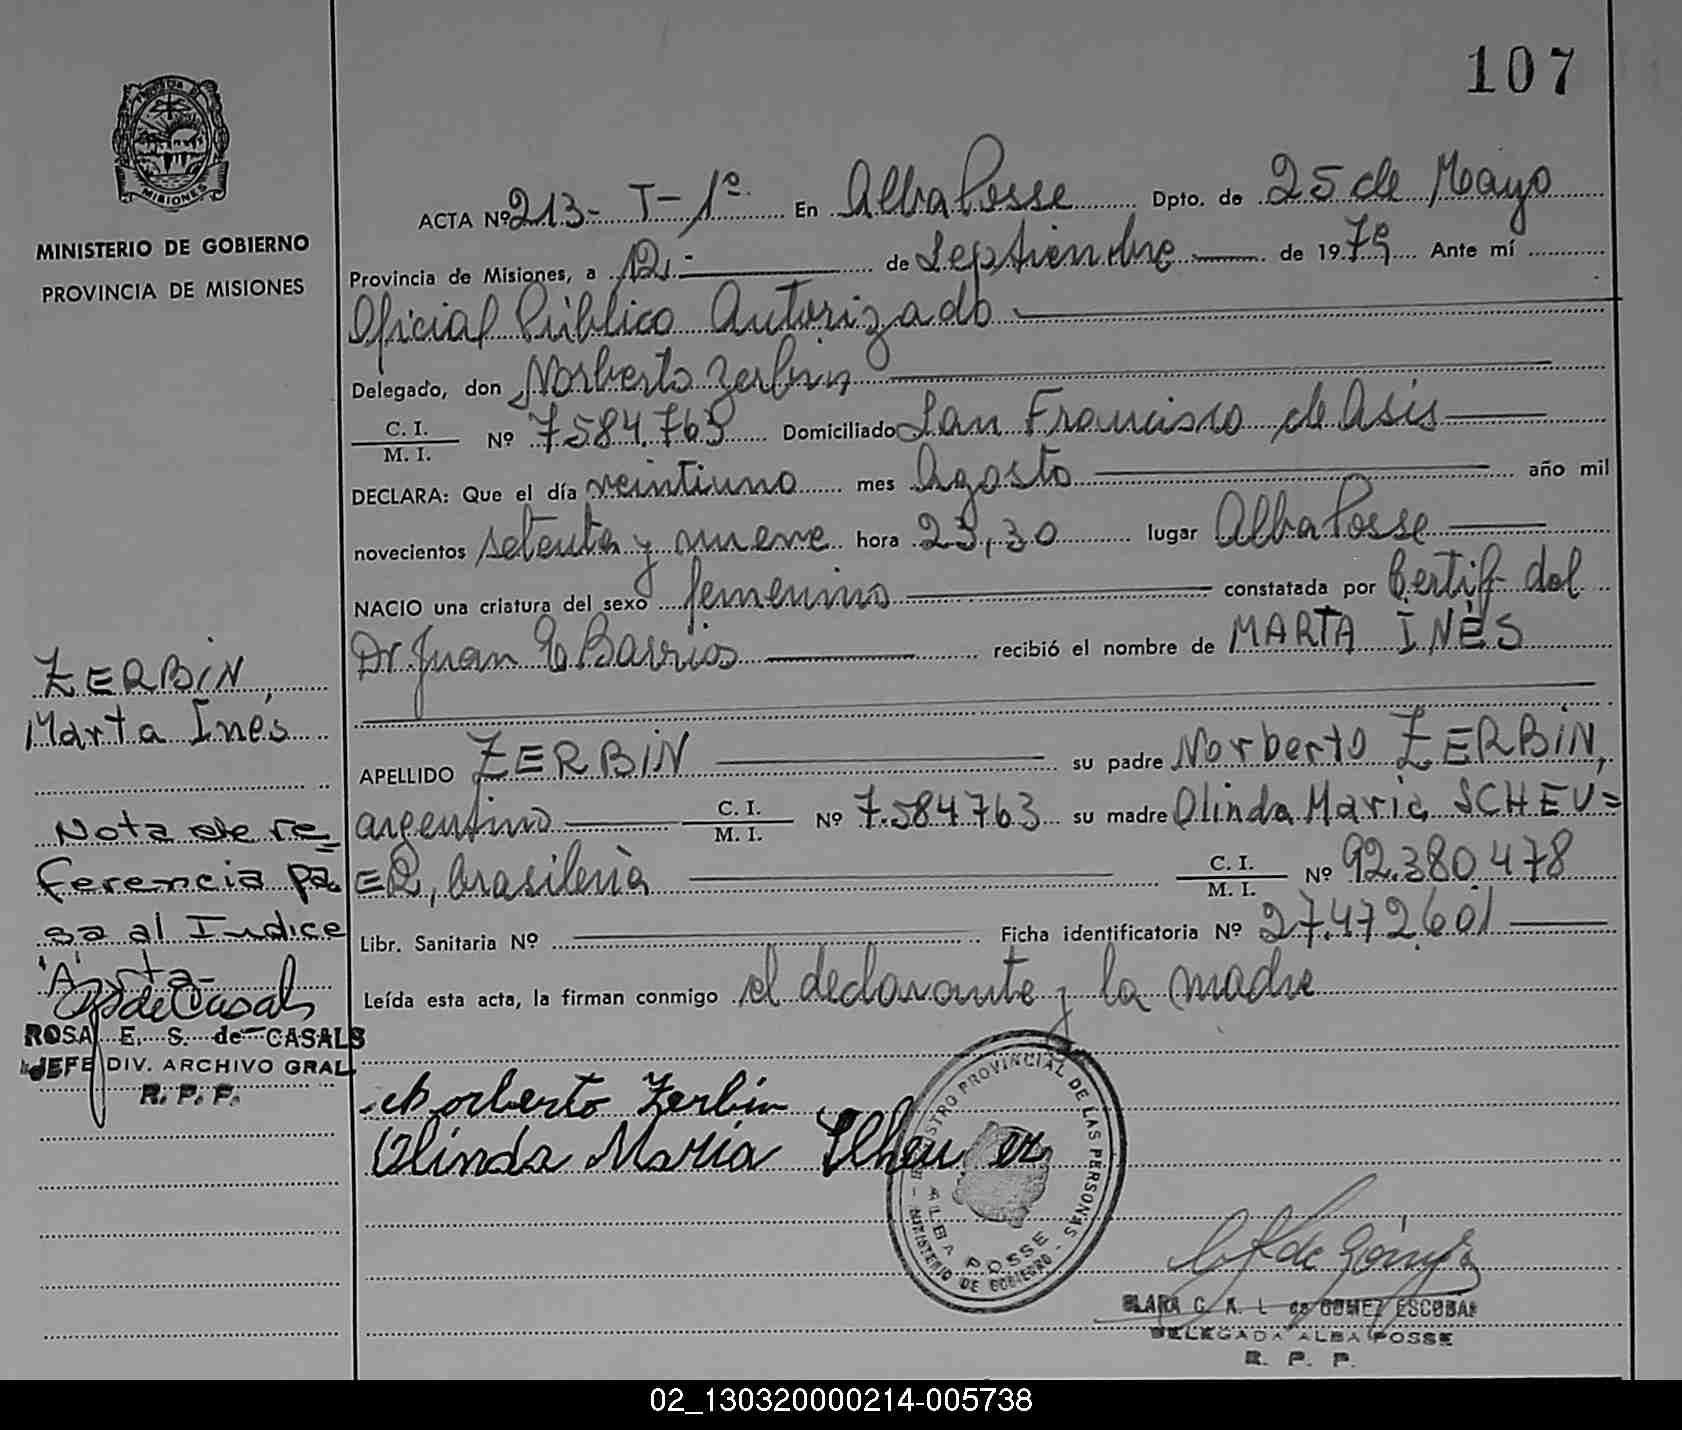 107
MISIONES
MINISTERIO DE GOBIERNO
PROVINCIA DE MISIONES
ACTA Nº 213- T-1º. En Alba Posse Dpto. de 25 de Mayo
Provincia de Misiones, a 12.- de Septiembre de 1979 Ante mí
Oficial Público Autorizado
Delegado, don Norberto Zerbin
C. I.
M. I. Nº 7.584.763 Domiciliado San Francisco de Asís
DECLARA: Que el día veintiuno mes Agosto año mil
novecientos setenta y nueve hora 23,30 lugar Alba Posse
NACIO una criatura del sexo femenino constatada por Certif- del
Dr Juan E Barrios recibió el nombre de MARTA INÉS
APELLIDO ZERBIN su padre Norberto ZERBIN,
argentino C. I.
M. I. Nº 7.584763 su madre Olinda Maria SCHEU=
ER, brasileña C. I.
M. I. Nº 92.380.478
Libr. Sanitaria Nº Ficha identificatoria Nº 27.472.601
Leída esta acta, la firman conmigo el declarante y la madre
Norberto Zerbin
Olinda Maria
REGISTRO PROVINCIAL DE LAS PERSONAS
- MINISTERIO DE GOBIERNO -
ALBA POSSE
CLARA C. K. L de GOMEZ ESCOBAR
DELEGADA ALBA POSSE
R. P. P.
ZERBIN,
Marta Inés
Nota de re=
ferencia pa
sa al Indice
"A"
ROSA E. S. de CASALS
JEFE DIV. ARCHIVO GRAL
R. P. P.
02_130320000214-005738